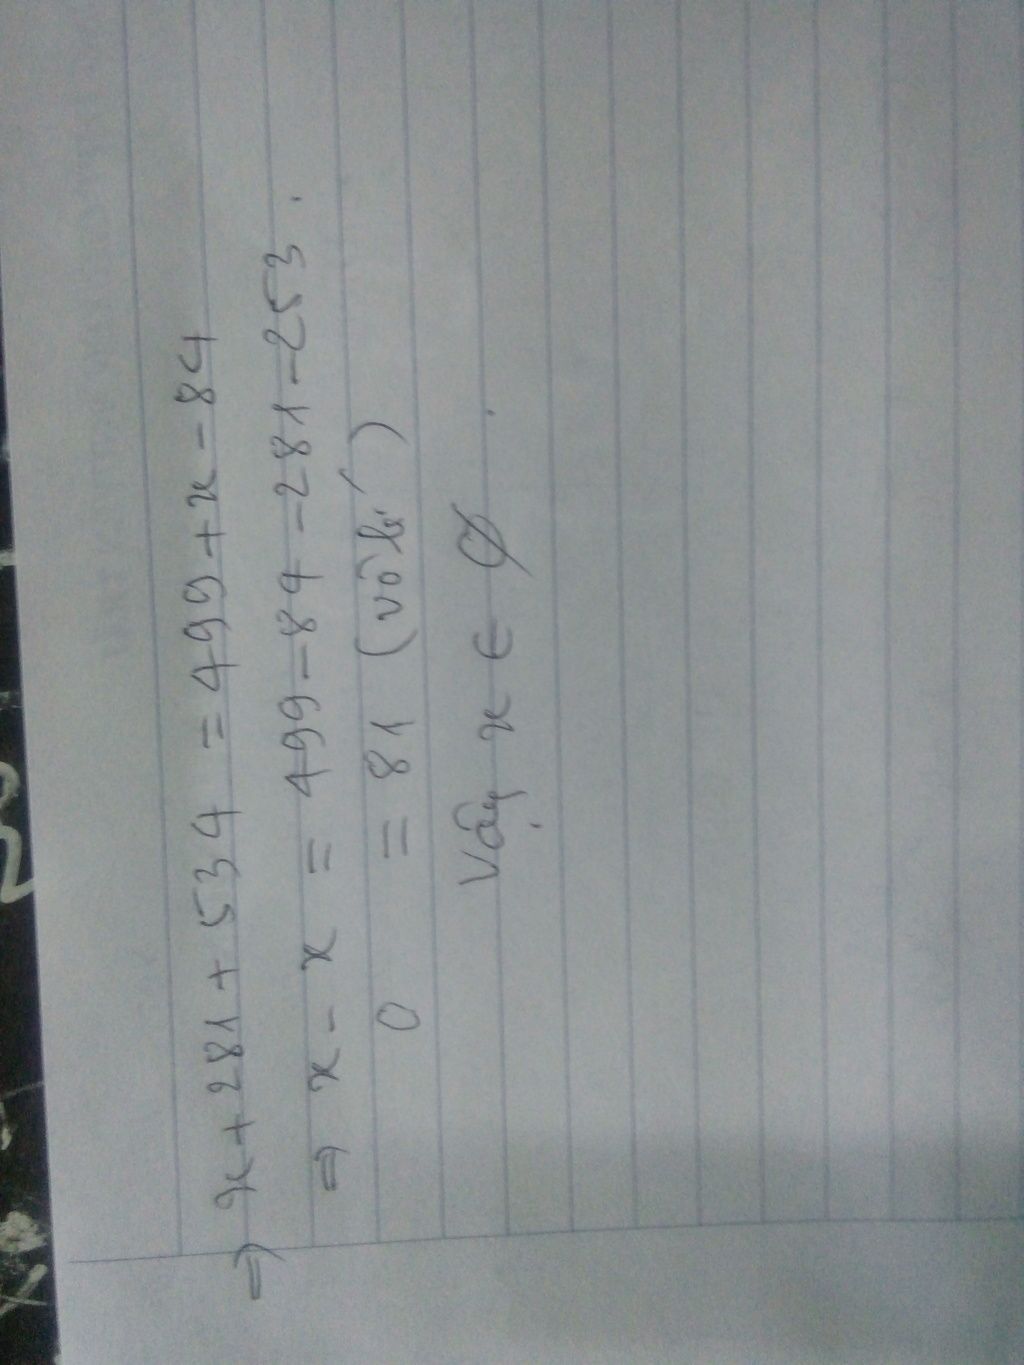 ⇒ x + 281 + 534 = 499 + x - 84
⇒ x - x = 499 - 84 - 281 - 253.
0 = 81 (vô lí)
Vậy x ∈ ∅.